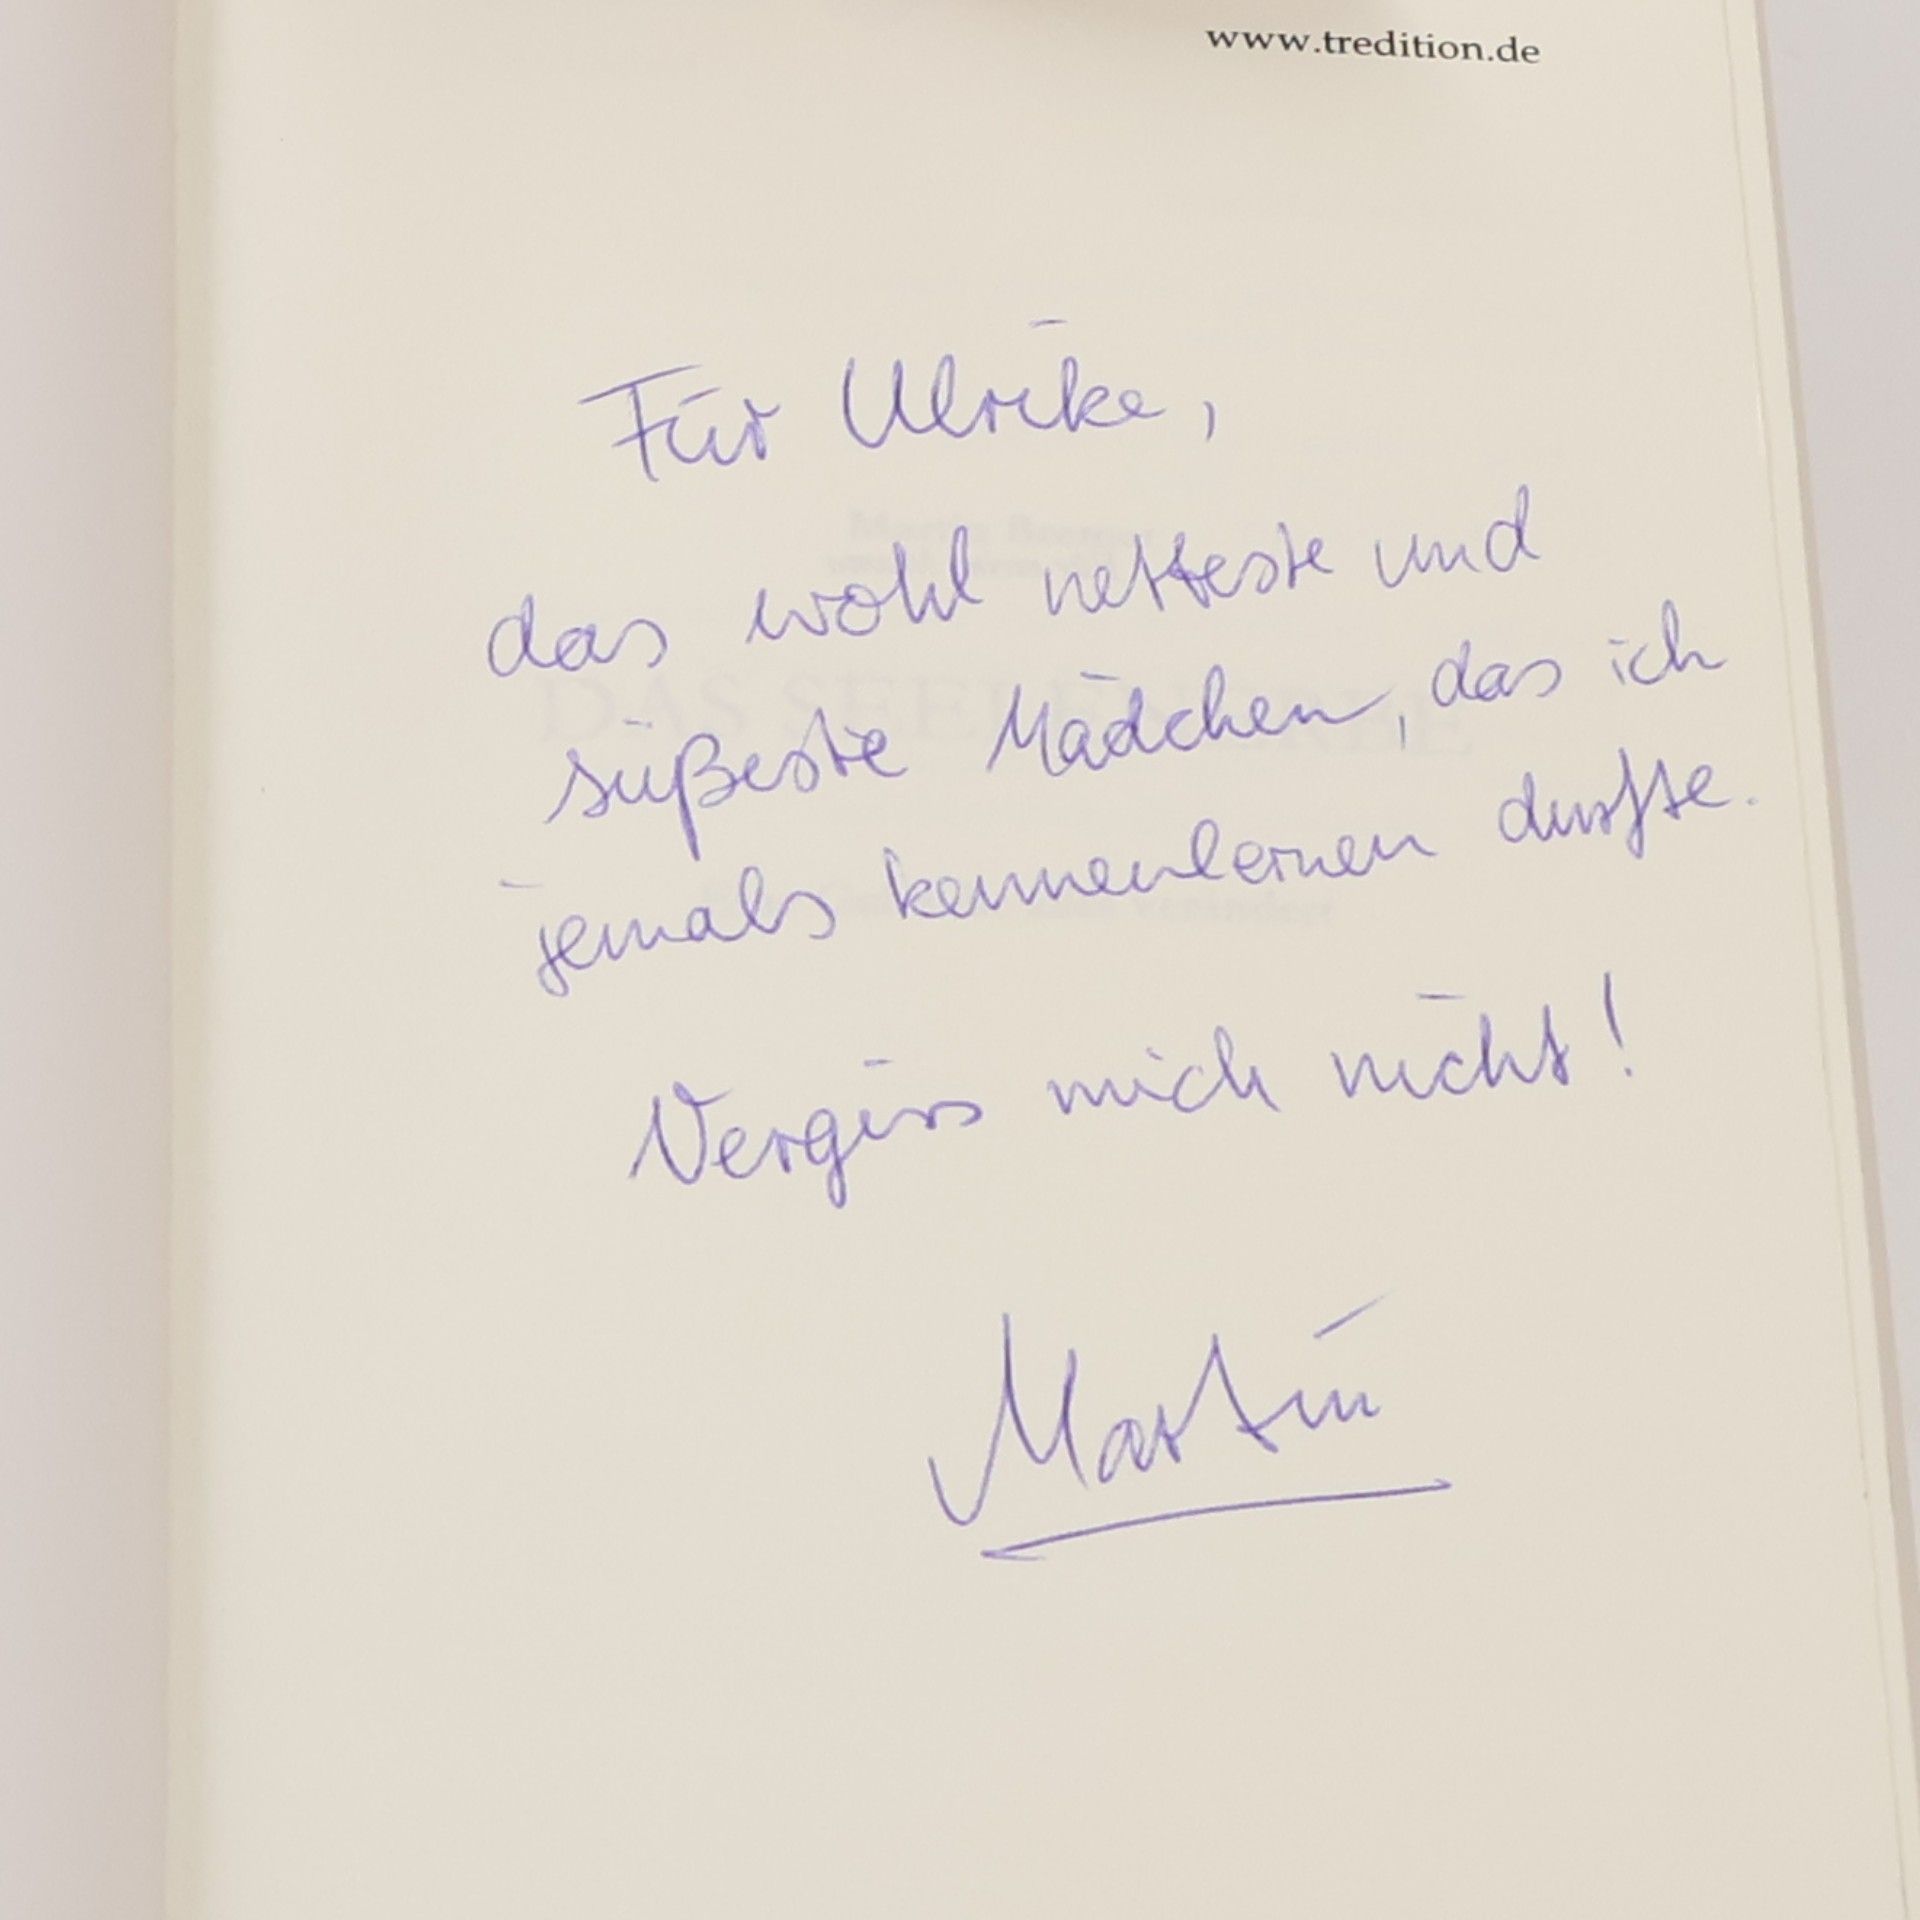 www.tredition.de
Für Ulrike,
das wohl netteste und
süßeste Mädchen, das ich
jemals kennenlernen durfte.
Vergiss mich nicht!
Martin